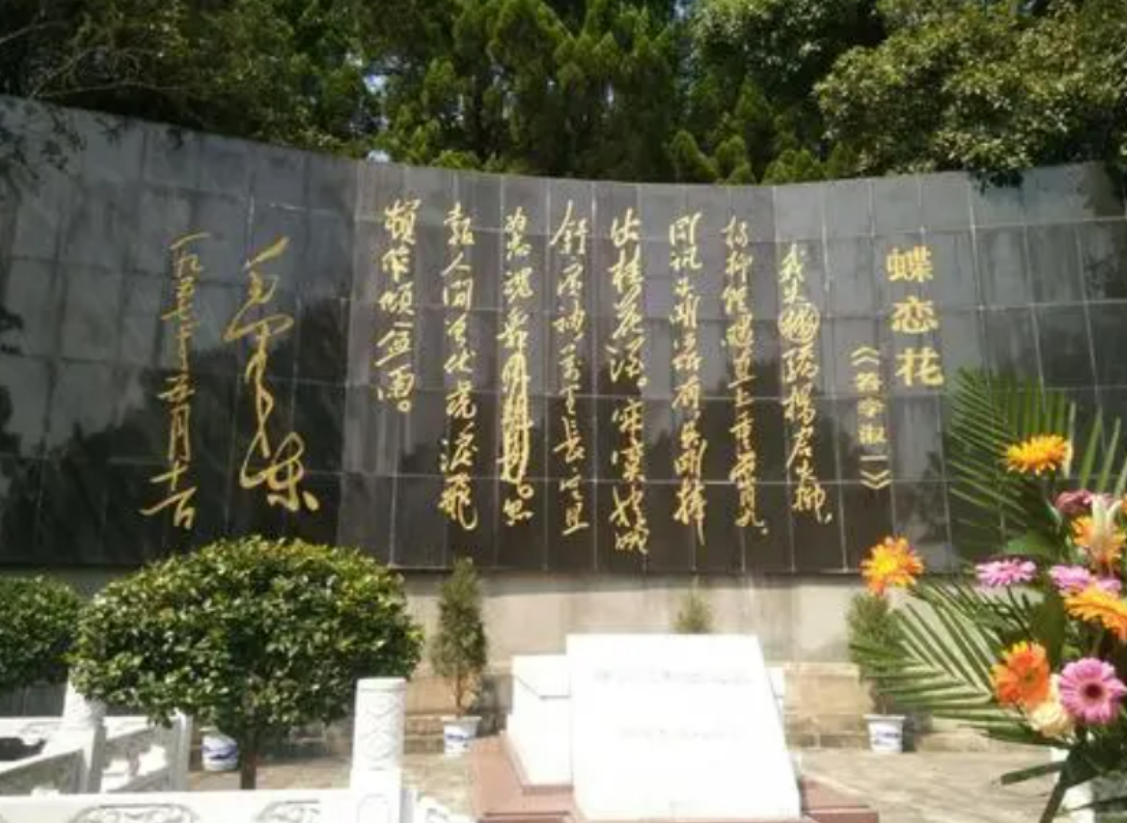 蝶恋花
《答李淑一》
我失驕楊君失柳,
楊柳輕颺直上重霄九。
问讯吴刚何所有,吴刚捧
出桂花酒。寂寞嫦娥
舒廣袖,萬里長空且
为忠魂舞。忽
報人间曾伏虎,淚飛
頓作傾盆雨。
毛澤東
一九五七年五月十一日